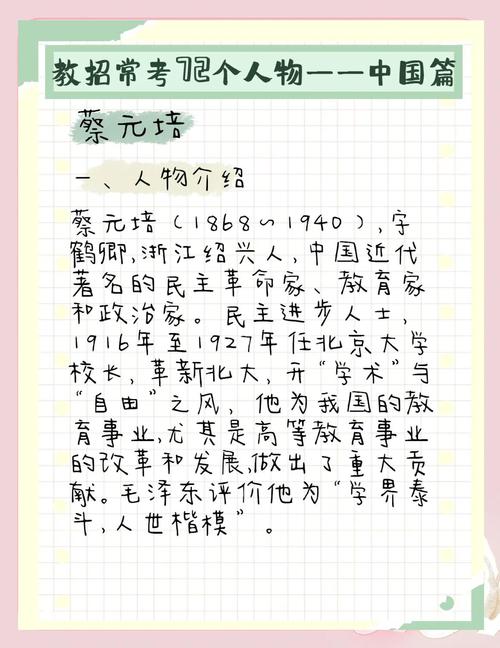 教招常考72个人物——中国篇
蔡元培
一、人物介绍
蔡元培（1868～1940），字
鹤卿，浙江绍兴人，中国近代
著名的民主革命家、教育家
和政治家。民主进步人士，
1916年至1927年任北京大学
校长，革新北大，开“学术”与
“自由”之风，他为我国的教
育事业，尤其是高等教育事业
的改革和发展，做出了重大贡
献。毛泽东评价他为“学界泰
斗，人世楷模”。